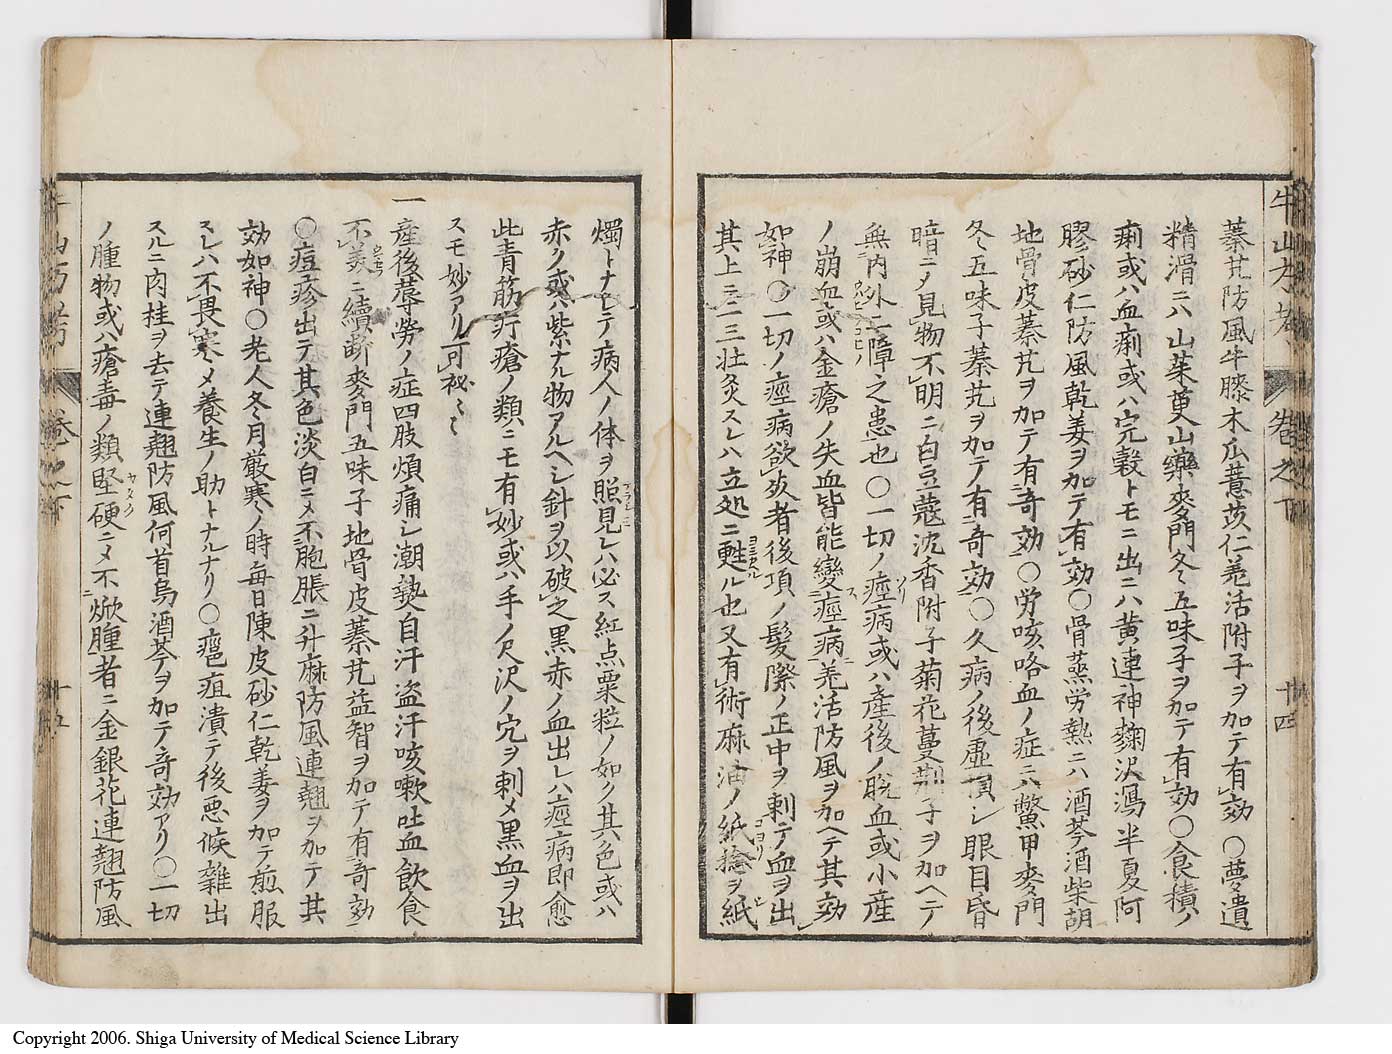 牛山方考 卷之下 十四
蓁芃防風牛膝木瓜薏苡仁羗活附子ヲ加テ有效 ○夢遺
精滑ニハ山茱萸山藥麥門冬〻五味子ヲ加テ有效○食積ノ
痢或ハ血痢或ハ完穀トモニ出ニハ黄連神麹沢瀉半夏阿
膠砂仁防風乾姜ヲ加テ有效○骨蒸労熱ニハ酒芩酒柴胡
地骨皮蓁芃ヲ加テ有竒効○労咳咯血ノ症ニハ鱉甲麥門
冬〻五味子蓁芃ヲ加テ有竒効○久病ノ後虚損シ眼目昏
暗ニメ見物不明ニ白豆蔲沈香附子菊花蔓荆子ヲ加ヘテ
無内外二障之患也○一切ノ痙病或ハ産後ノ脱血或小産
ノ崩血或ハ金瘡ノ失血皆能變痙病羗活防風ヲ加ヘテ其効
如神○一切ノ痙病欲死者後項ノ髮際ノ正中ヲ刺テ血ヲ出
其上ニ三壯灸スレハ立処ニ甦ル也又有術麻油ノ紙捻ヲ紙
燭トナヒテ病人ノ体ヲ照見レハ必ス紅点粟粒ノ如ク其色或ハ
赤ク或ハ紫ナル物アルヘシ針ヲ以破之黒赤ノ血出レハ痙病即愈
此青筋疔瘡ノ類ニモ有妙或ハ手ノ尺沢ノ穴ヲ刺メ黒血ヲ出
スモ妙アリ可秘〻〻
一 産後蓐勞ノ症四肢煩痛シ潮𤍠自汗盗汗咳嗽吐血飲食
不美ニ續断麥門五味子地骨皮蓁芃益智ヲ加テ有竒効
○痘疹出テ其色淡白ニメ不胞脹ニ升麻防風連翹ヲ加テ其
効如神○老人冬〻月厳寒〻ノ時毎日陳皮砂仁乾姜ヲ加テ煎服
スレハ不畏寒〻メ養生ノ助トナルナリ○癰疽潰テ後悪候雜出
スルニ肉桂ヲ去テ連翹防風何首烏酒芩ヲ加テ竒効アリ○一切
ノ腫物或ハ瘡毒ノ類堅硬ニメ不焮腫者ニ金銀花連翹防風
牛山方考 卷之下 十五
Copyright 2006. Shiga University of Medical Science Library